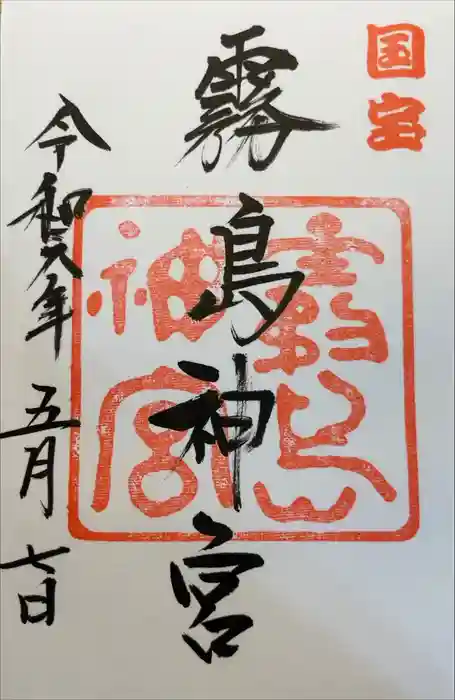 国宝
霧島神宮
霧島神宮
令和六年五月七日